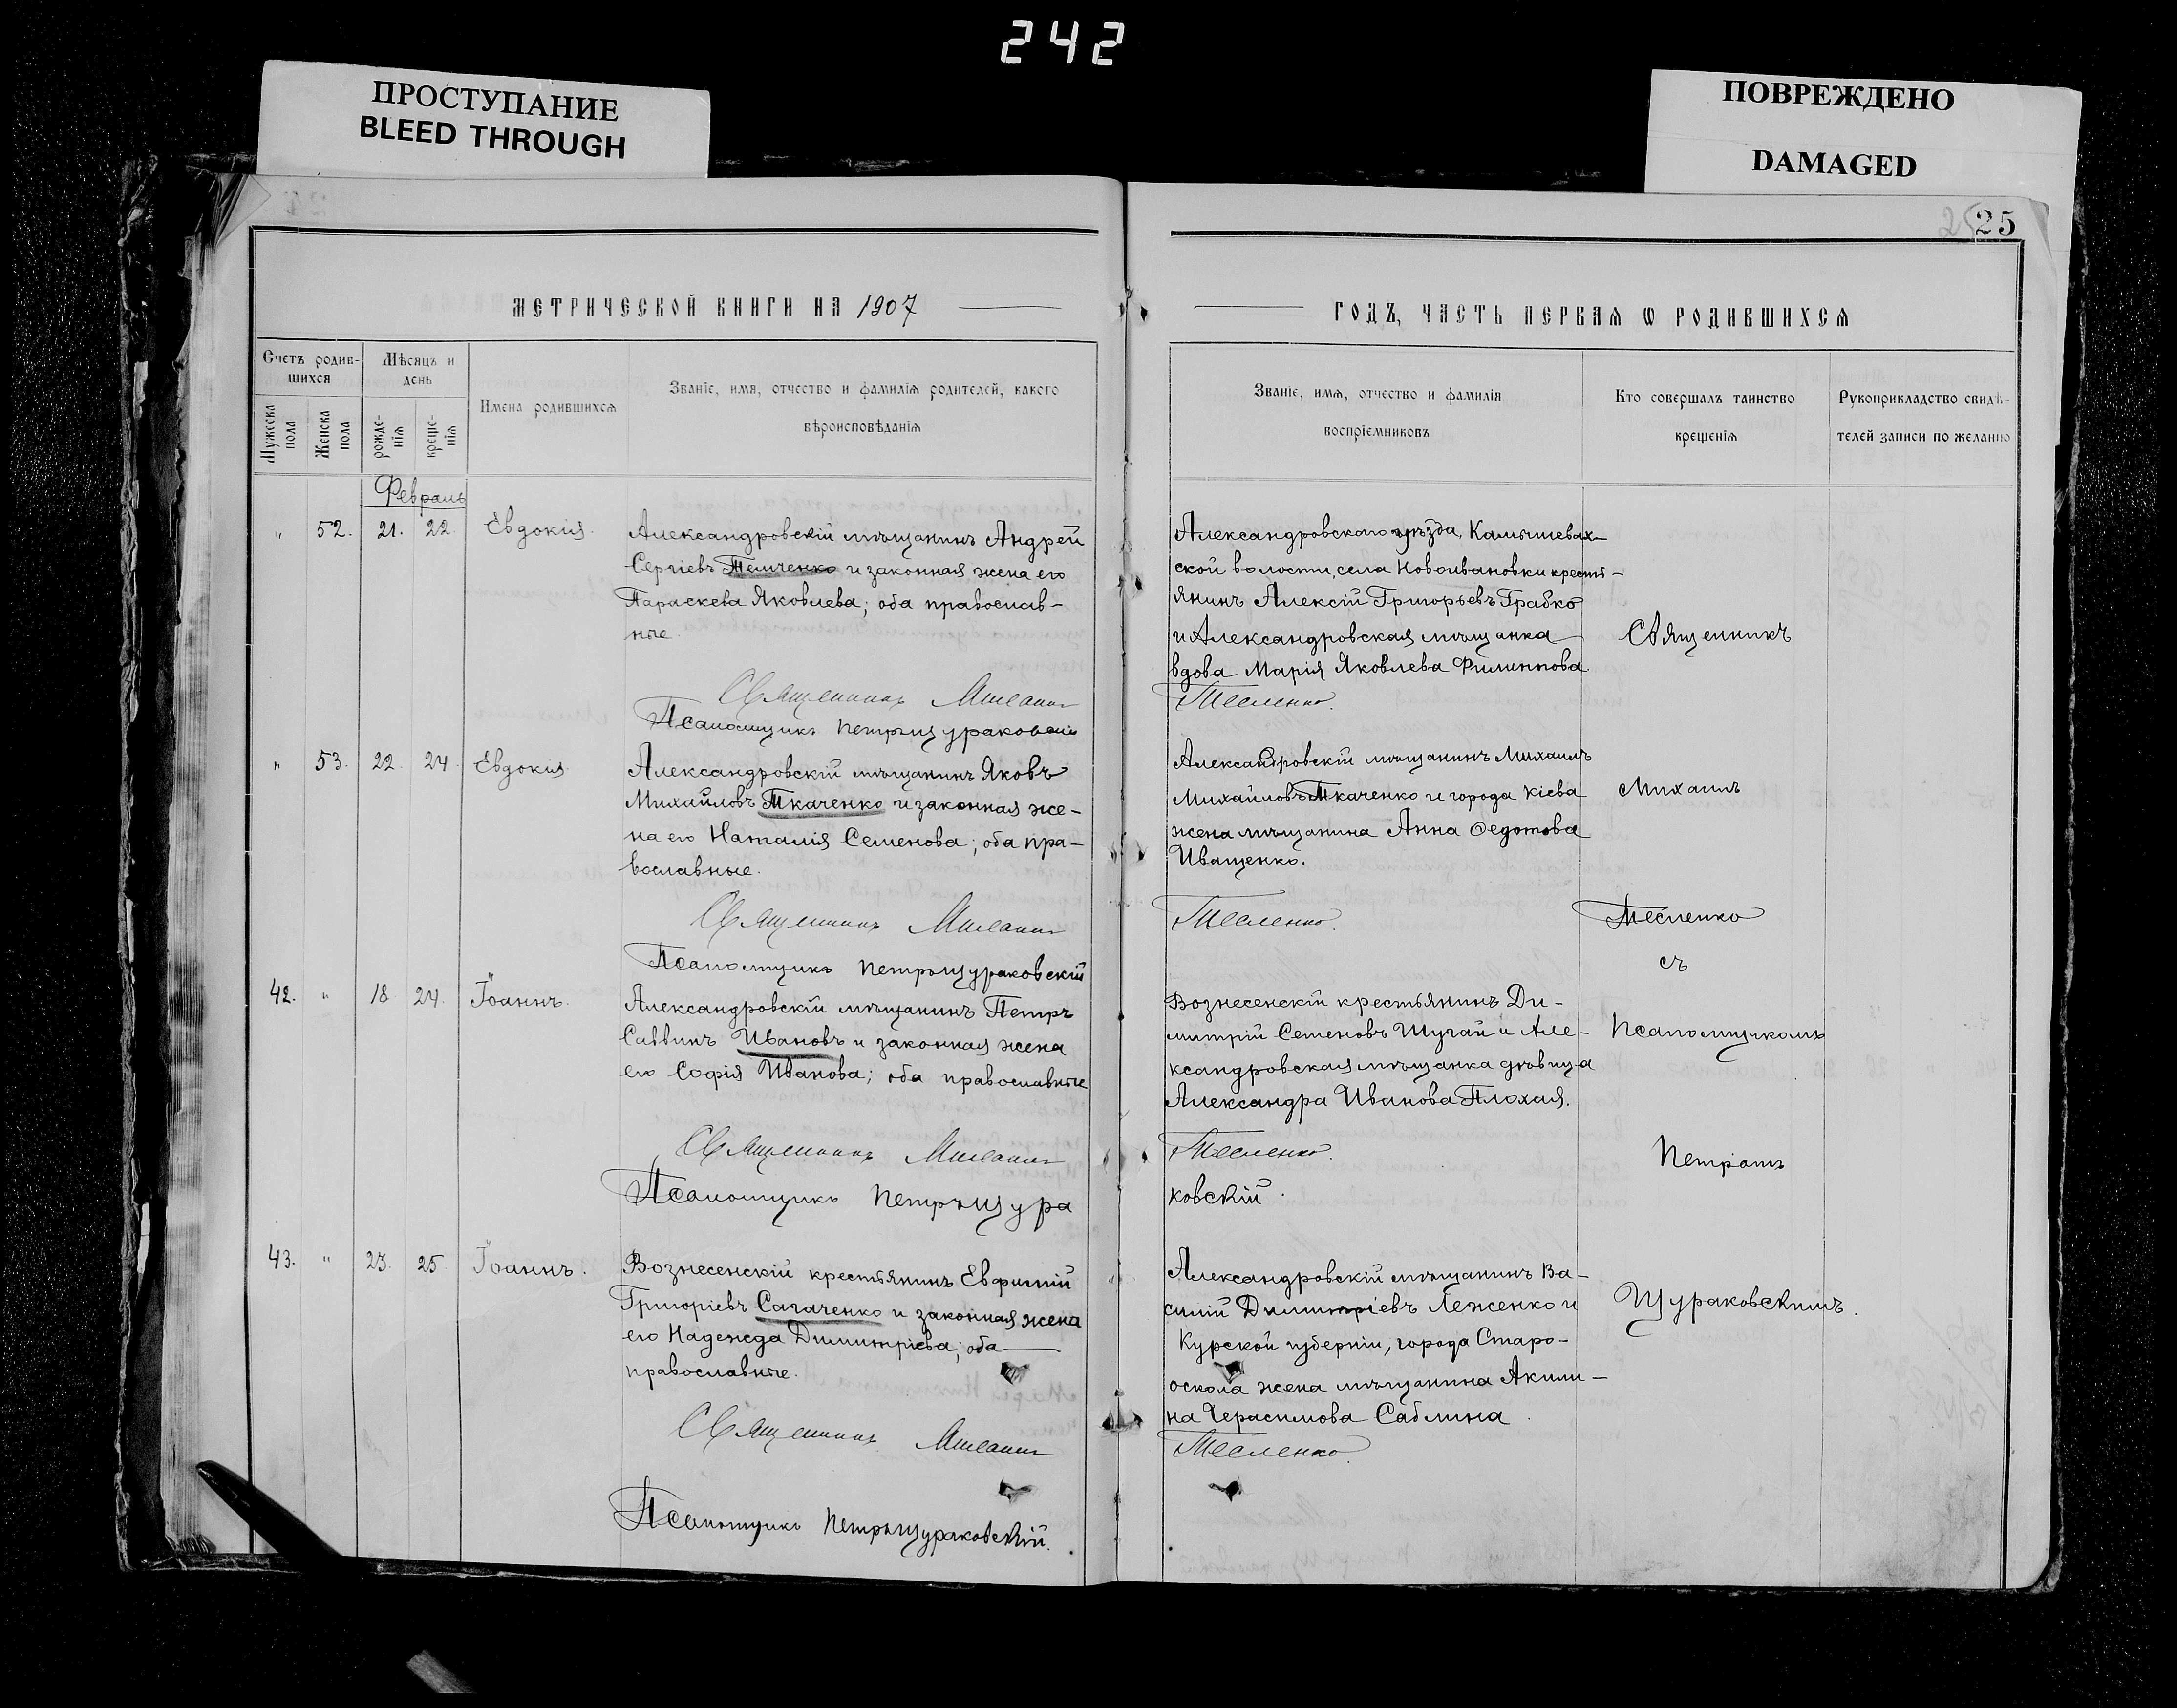 242
ПРОСТУПАНИЕ
BLEED THROUGH
ПОВРЕЖДЕНО
DAMAGED
25
МЕТРИЧЕСКОЙ КНИГИ НА 1907
ГОДЪ, ЧАСТЬ ПЕРВАЯ Ѡ РОДИВШИХСЯ
Счетъ родив-
шихся
Мѣсяцъ и
день
Мужеска пола
Женска пола
рожде-
нія
креще-
нія
Имена родившихся
Званіе, имя, отчество и фамилія родителей, какого
вѣроисповѣданія
Званіе, имя, отчество и фамилія
воспріемниковъ
Кто совершалъ таинство
крещенія
Рукоприкладство свидѣ-
телей записи по желанію
Февраль
" 52. 21. 22. Евдокія.
Александровскій мѣщанинъ Андрей
Сергіевъ Темченко и законная жена его
Параскева Яковлева; оба православ-
ные.
Священникъ Михаилъ
Псаломщикъ Петръ Щураковскій
Александровскаго уѣзда, Камышевах-
ской волости, села Новоивановки кресть-
янинъ Алексій Григорьевъ Грабко
и Александровская мѣщанка
вдова Марія Яковлева Филиппова.
Тесленко.
" 53. 22. 24. Евдокія
Александровскій мѣщанинъ Яковъ
Михайловъ Ткаченко и законная же-
на его Наталія Семенова; оба пра-
вославные.
Священникъ Михаилъ
Псаломщикъ Петръ Щураковскій
Александровскій мѣщанинъ Михаилъ
Михайловъ Ткаченко и города Кіева
жена мѣщанина Анна Ѳедотова
Иващенко.
Тесленко.
42. " 18. 24. Іоаннъ.
Александровскій мѣщанинъ Петръ
Саввинъ Ивановъ и законная жена
его Софія Иванова; оба православные
Священникъ Михаилъ
Псаломщикъ Петръ Щура
Вознесенскій крестьянинъ Ди-
митрій Семеновъ Шугай и Але-
ксандровская мѣщанка дѣвица
Александра Иванова Плохая.
Тесленко.
ковскій.
43. " 23. 25. Іоаннъ.
Вознесенскій крестьянинъ Евфимій
Григоріевъ Сагаченко и законная жена
его Надежда Димитріева; оба
православные.
Священникъ Михаилъ
Псаломщикъ Петръ Щураковскій.
Александровскій мѣщанинъ Ва-
силій Димитріевъ Леженко и
Курской губерніи, города Старо-
оскола жена мѣщанина Акили-
на Герасимова Саблина.
Тесленко.
Священникъ
Михаилъ
Тесленко
съ
Псаломщикомъ
Петромъ
Щураковскимъ.